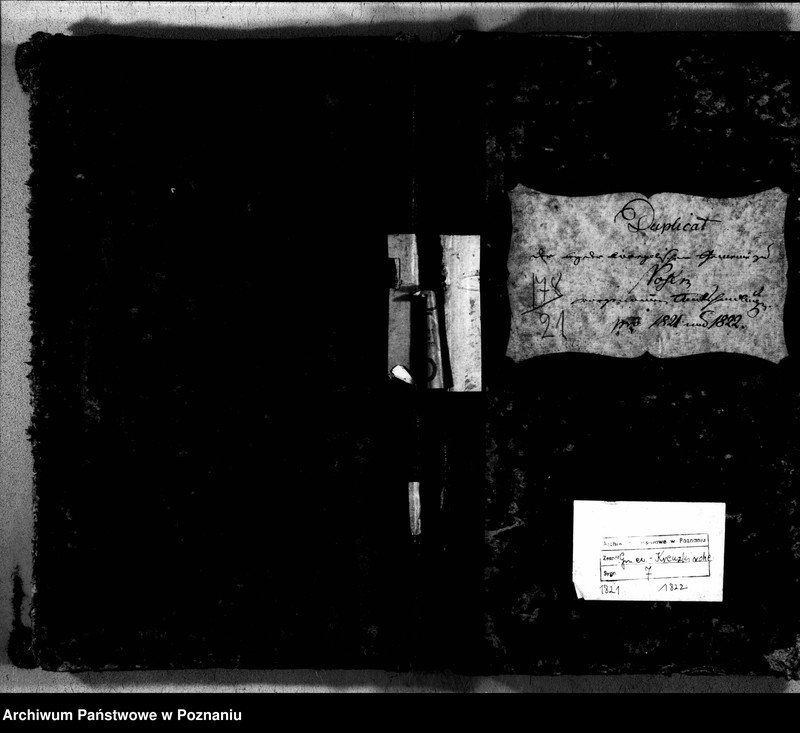 Duplicat
der
evangelischen
Posen
178
21
pro 1821 und 1822.
Archiwum Państwowe w Poznaniu
Zespół Gm. ew. - Kreuzkirche
Sygn. 7
1821 1822
Archiwum Państwowe w Poznaniu